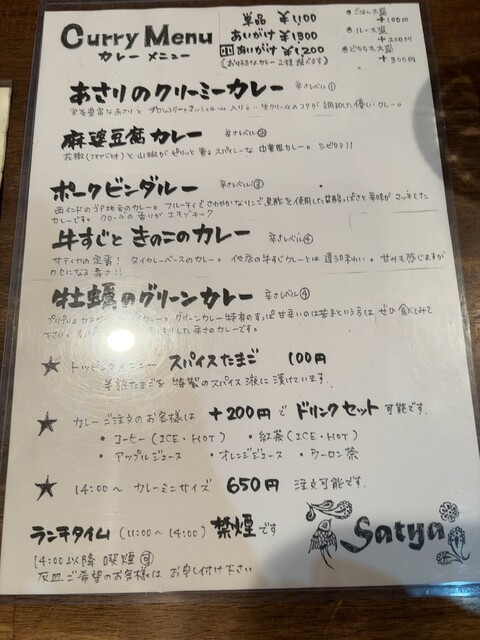 Curry Menu
カレーメニュー
単品 ¥1,100
あいがけ ¥1,300
小 あいがけ ¥1,200
(お好きなカレー2種選べます)
ごはん大盛
+100円
ルー大盛
+200円
どちらも大盛
+300円
あさりのクリーミーカレー 辛さレベル①
栄養豊富なあさりと ブロッコリー、マッシュルーム入り♪ 生クリームのコクが 調和した優しいカレー。
麻婆豆腐カレー 辛さレベル②
花椒(ホアジャオ)と山椒が ピリッと香る スパイシーな 中華風カレー。シビウマ!!
ポークビンダルー 辛さレベル③
西インドのゴア地方のカレー。フルーティでさわやかなりんご黒酢を使用した 甘酸っぱさと辛味がマッチした
カレーです。クローブの香りが エキゾチック
牛すじときのこのカレー 辛さレベル④
サティヤの定番! タイカレーベースのカレー。他店の牛すじカレーとは違う味わい。甘みも感じますが
クセになる 辛さ!!
牡蠣のグリーンカレー 辛さレベル④
グリーンカレー特有のすっぱ甘辛いのは苦手という方は ぜひ 食べてみて
下さい。 した辛さのカレーです。
★ トッピングメニュー スパイスたまご 100円
半熟たまごを 特製のスパイス液に 漬けています。
★ カレーご注文のお客様は +200円で ドリンクセット 可能です。
・コーヒー(ICE・HOT) ・紅茶(ICE・HOT)
・アップルジュース ・オレンジジュース ・ウーロン茶
★ 14:00〜 カレーミニサイズ 650円 注文可能です。
ランチタイム (11:00〜14:00) 禁煙です
14:00以降 喫煙可
灰皿ご希望のお客様は お申し付け下さい
Satya